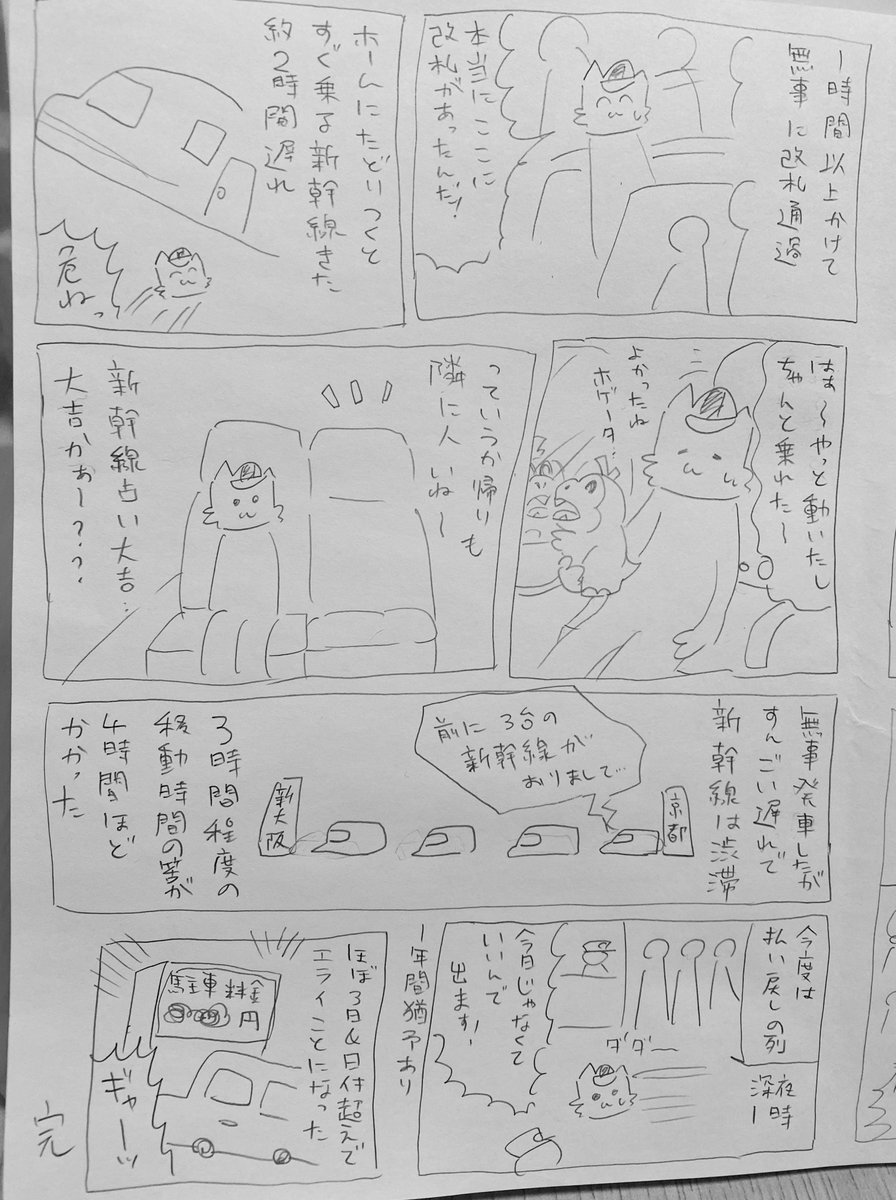 1時間以上かけて
無事に改札通過
本当にここに
改札があったんだ!
ホームにたどりつくと
すぐ乗る新幹線きた
約2時間遅れ
危ねっ
はぁ〜やっと動いたし
ちゃんと乗れた〜
よかったね
ホゲータ…
っていうか帰りも
隣に人いね〜
新幹線占い大吉…
大吉かぁー???
無事発車したが
すんごい遅れで
新幹線は渋滞
京都
前に3台の
新幹線が
おりまして…
新大阪
3時間程度の
移動時間の筈が
4時間ほど
かかった
今度は
払い戻しの列
深夜
1時
ダダー
今日じゃなくて
いいんで
出ます!
1年間猶予あり
ほぼ3日&日付超えで
エライことになった
駐車料金
円
ギャーッ
完